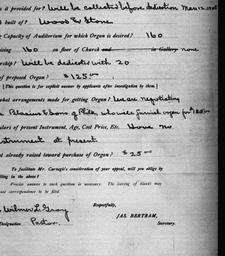 is it provided for? Will be collected before dedication Mar 12, 1905
built of? Wood & Stone
g Capacity of Auditorium for which Organ is desired? 160
160 on floor of Church in Gallery none
ership? Will be dedicated with 20
of proposed Organ? $125.00
[This question is for explicit answer by applicants after investigation by them.]
what arrangements made for getting Organ? We are negotiating
& Sons of Phila, who will furnish organ for
ulars of present Instrument, Age, Cost Price, Etc. Have no
instrument at present
t already raised toward purchase of Organ? $25.00
To facilitate Mr. Carnegie's consideration of your appeal, will you oblige by
filling in the above?
Precise answer to each question is necessary. The leaving of blanks may
correspondence to be filed.
Respectfully,
Wilmer L. Gray
JAS. BERTRAM,
Designation Pastor.
Secretary.